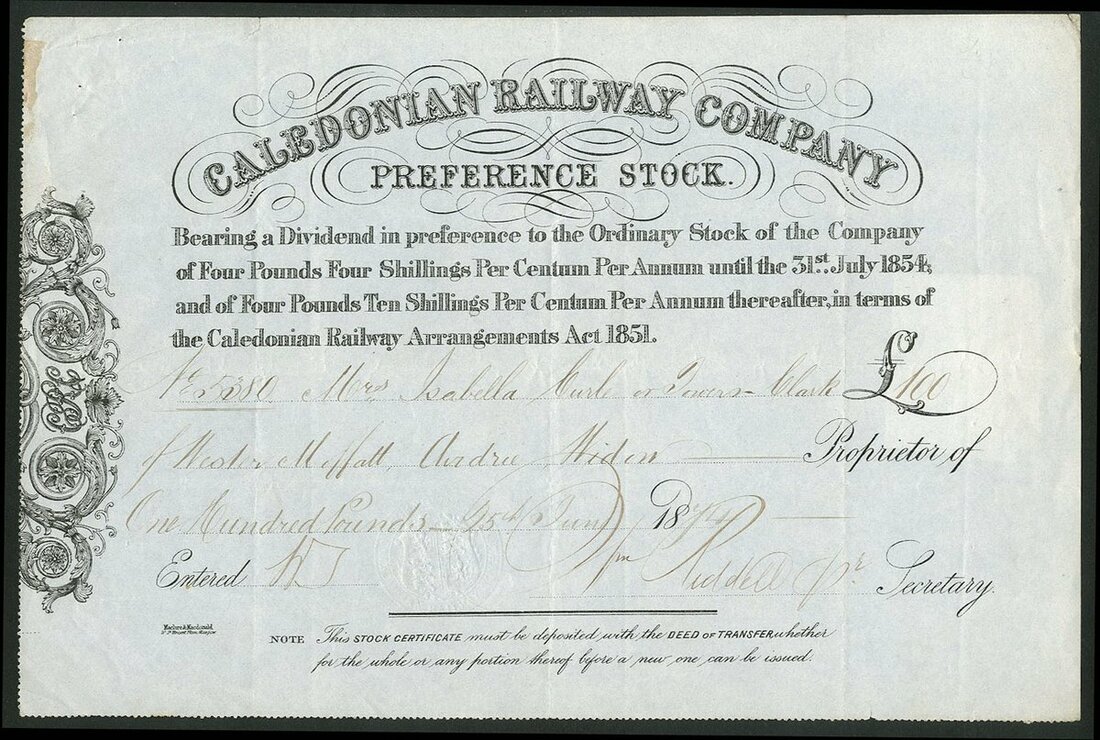 CALEDONIAN RAILWAY COMPANY
PREFERENCE STOCK.
Bearing a Dividend in preference to the Ordinary Stock of the Company
of Four Pounds Four Shillings Per Centum Per Annum until the 31st. July 1854,
and of Four Pounds Ten Shillings Per Centum Per Annum thereafter, in terms of
the Caledonian Railway Arrangements Act 1851.
No. 5380. Mrs Isabella Curle or Towers-Clark £100
of Wester Moffatt, Airdrie, Widow Proprietor of
One Hundred Pounds 15th June 1874
Entered Secretary.
Maclure & Macdonald
NOTE This STOCK CERTIFICATE must be deposited with the DEED OF TRANSFER, whether
for the whole or any portion thereof before a new one can be issued.